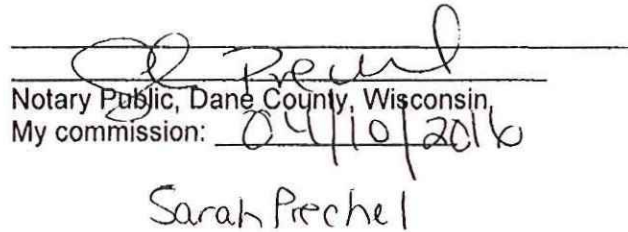 Notary Public, Dane County, Wisconsin
My commission: 04/10/2016
Sarah Prechel